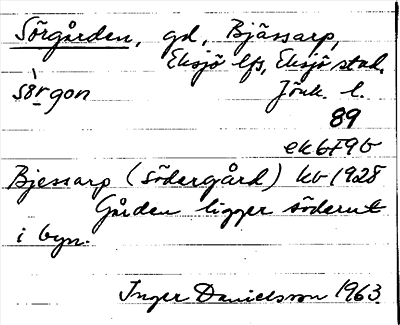 Sörgården, gd, Bjässarp,
Eksjö lfs, Eksjö stad,
sö̀rgon Jönk. l.
89
ek 6F9b
Bjessarp (Södergård) kb 1928
Gården ligger söderut
i byn.
Inger Danielsson 1963